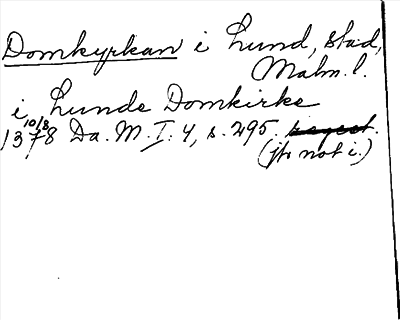 Domkyrkan i Lund, stad,
Malm. l.
i Lunde Domkirke
10/8
1378 Da. M. I. 4, s. 295.
(jfr not i.)